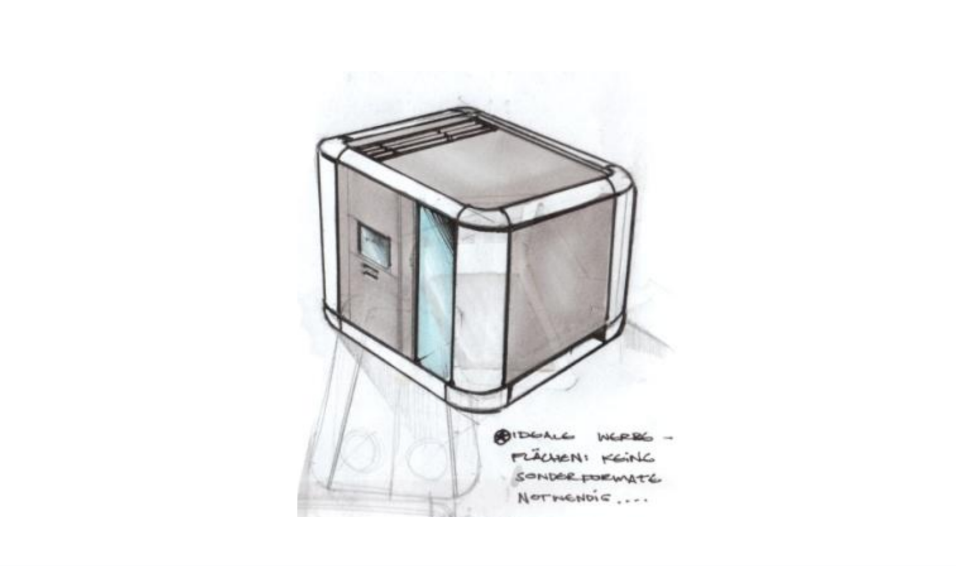 IDEALE WERBE-
FLÄCHEN: KEINE
SONDERFORMATE
NOTWENDIG....